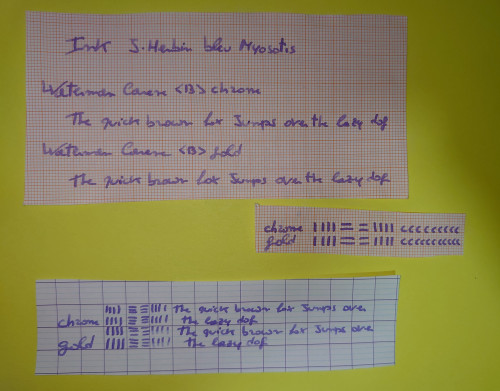 Ink J. Herbin bleu Myosotis
Waterman Carene <B> chrome
The quick brown fox Jumps over the lazy dog
Waterman Carene <B> gold
The quick brown fox Jumps over the lazy dog
chrome
gold
The quick brown fox Jumps over
chrome the lazy dog
The quick brown fox Jumps over
gold the lazy dog